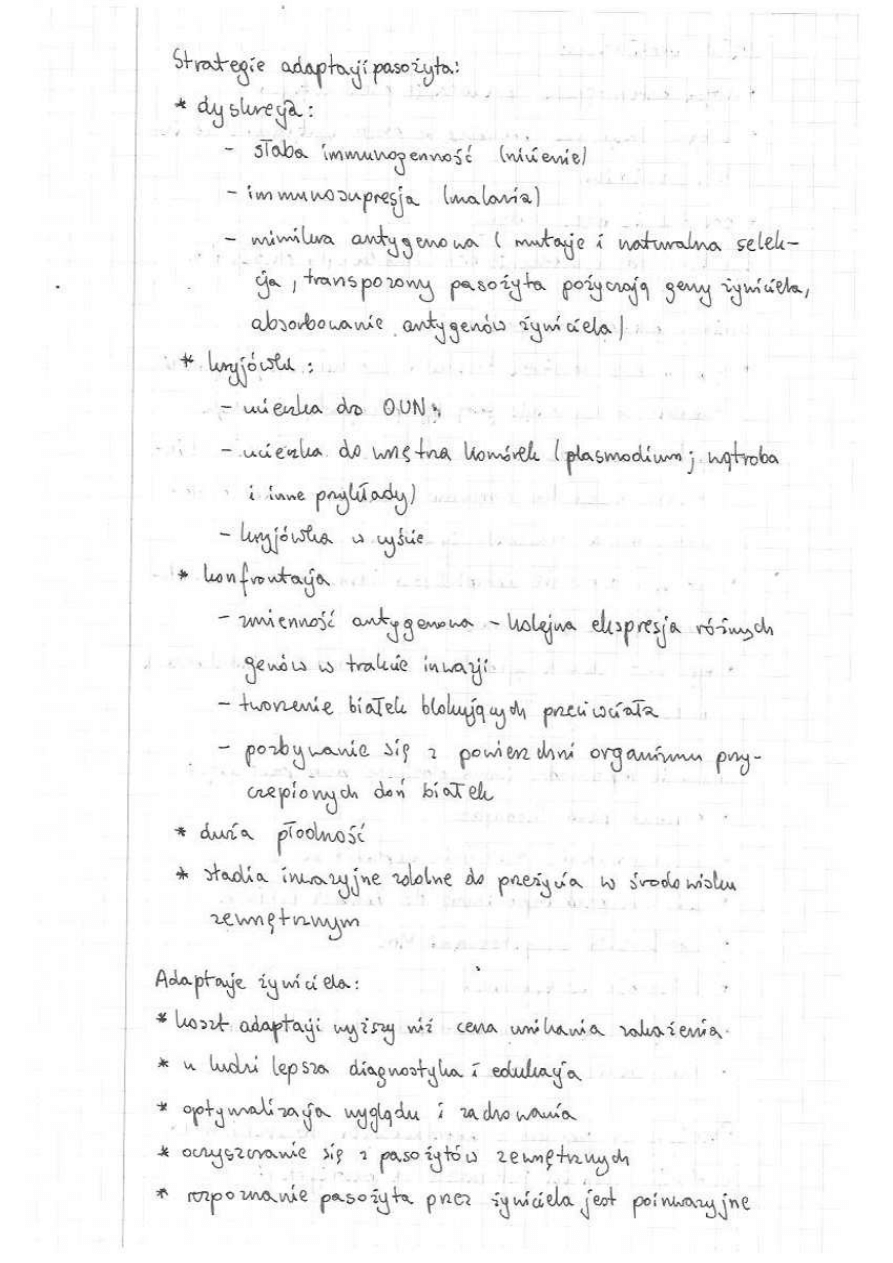 Strategie adaptacji pasożyta:
* dyskrecja:
- słaba immunogenność (nicienie)
- immunosupresja (malaria)
- mimikra antygenowa ( mutacje i naturalna selek-
cja, transpozony pasożyta pożyczają geny żywiciela,
absorbowanie antygenów żywiciela)
* kryjówki:
- ucieczka do OUN
- ucieczka do wnętrza komórek (plasmodium; wątroba
i inne przykłady)
- kryjówka w cyście
* konfrontacja
- zmienność antygenowa - kolejna ekspresja różnych
genów w trakcie inwazji
- tworzenie białek blokujących przeciwciała
- pozbywanie się z powierzchni organizmu przy-
czepionych doń białek
* duża płodność
* stadia inwazyjne zdolne do przeżycia w środowisku
zewnętrznym
Adaptacje żywiciela:
* koszt adaptacji wyższy niż cena unikania zakażenia
* u ludzi lepsza diagnostyka i edukacja
* optymalizacja wyglądu i zachowania
* oczyszczanie się z pasożytów zewnętrznych
* rozpoznanie pasożyta przez żywiciela jest poinwazyjne